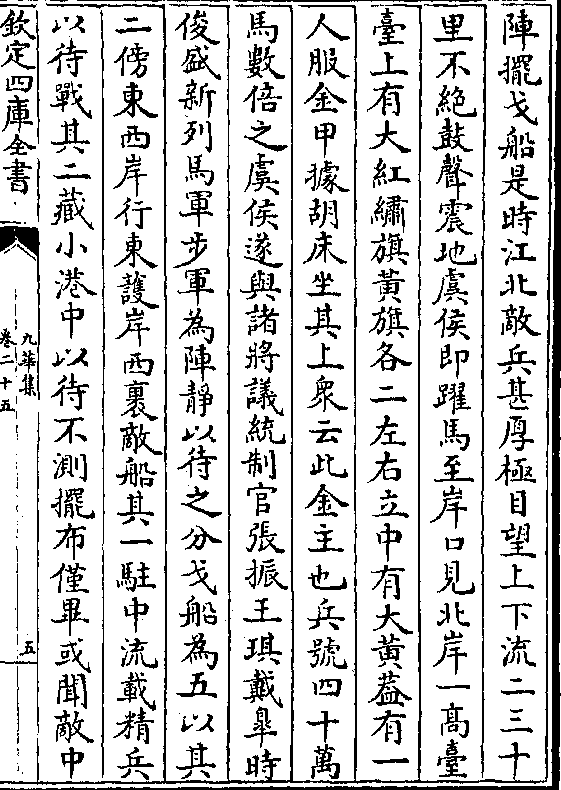 陣擺戈船是時江北敵兵甚厚極目望上下流二三十
里不絕鼓聲震地虞侯即躍馬至岸口見北岸一髙臺
臺上有大紅繡旗黃旗各二左右立中有大黃葢有一
人服金甲據胡床坐其上衆云此金主也兵號四十萬
馬數倍之虞侯遂與諸將議統制官張振王琪戴臯時
俊盛新列馬軍步軍為陣靜以待之分戈船為五以其
二傍東西岸行東護岸西裏敵船其一駐中流載精兵
以待戰其二藏小港中以待不測擺布僅畢或聞敵中
欽定四庫全書
九華集
卷二十五
五